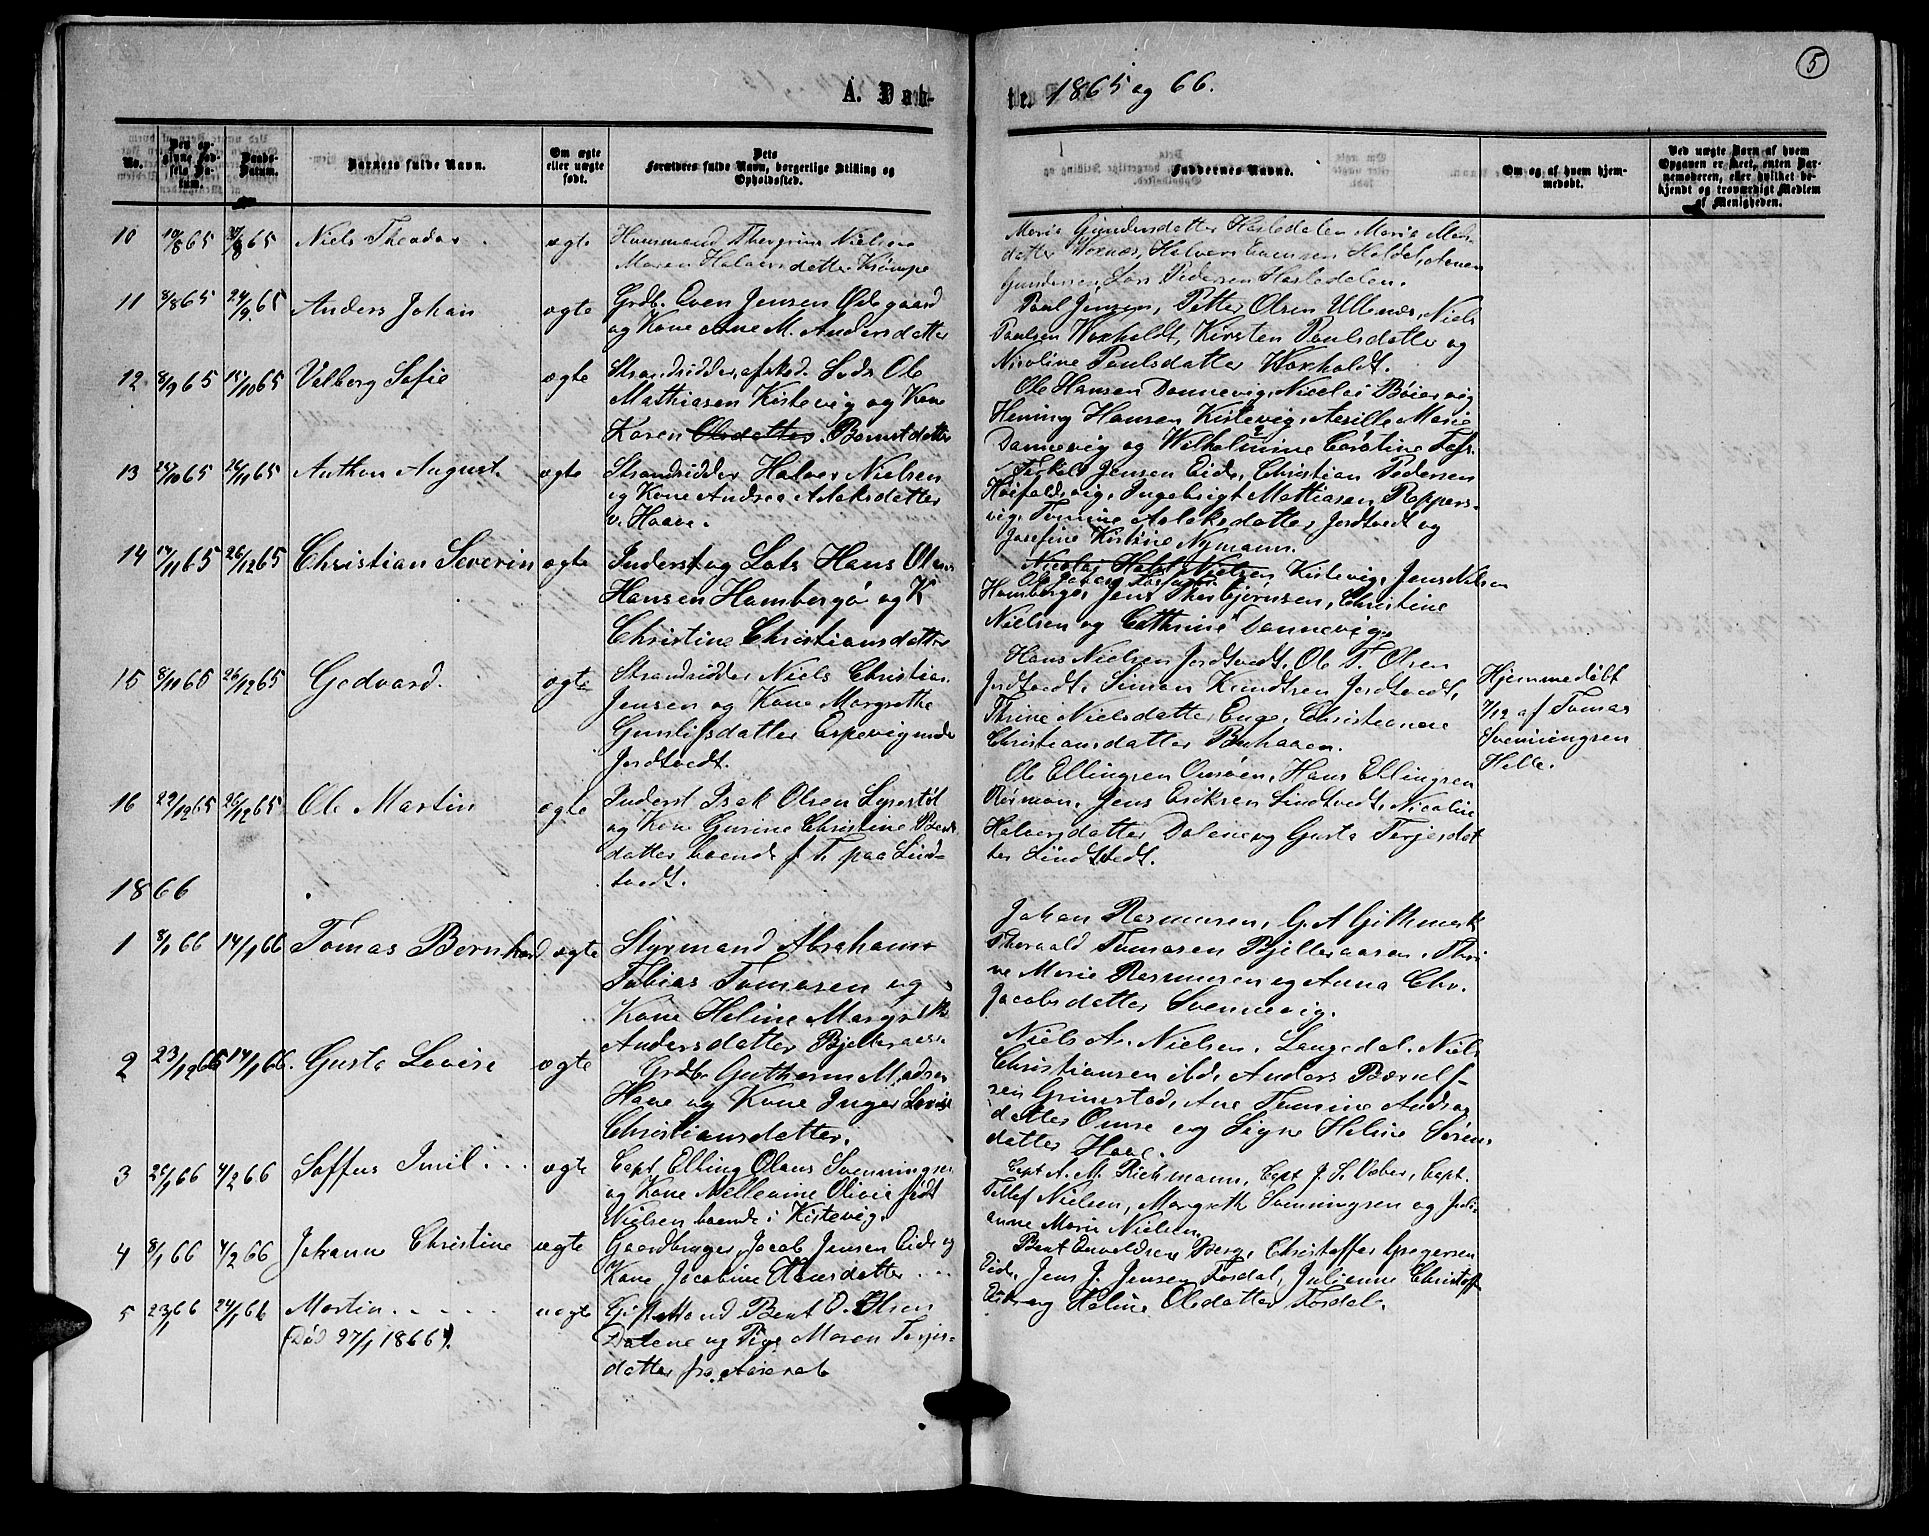 5
A. Døb-
te. 1865 og 66.
No.
Den op-
givne Fød-
sels Da-
tum.
Daabs-
Datum.
Barnets fulde Navn.
Om ægte
eller uægte
født.
Dets
Forældres fulde Navn, borgerlige Stilling og
Opholdssted.
Faddernes Navne.
Om og af hvem hjem-
medøbt.
Ved uægte Børn af hvem
Opgaven er skeet, enten Bar-
nemoderen, eller hvilket be-
kjendt og troværdigt Medlem
af Menigheden.
10 10/8 65 Niels Theodor ægte
Huusmand Thorgrim Nielsen
Maren Halvorsdatter Krømpe
Maria Gundersdatter Hasledalen Maria Mads-
datter Voxnæs, Halvor Evensen Holdal,
Gundersen, Lars Pedersen Hasledalen.
11 8/8 65 24/9 65 Anders Johan ægte
Grdb. Even Jensen Ødegaard
og Kone Ane M. Andersdatter
Paul Jensen, Petter Olsen Ullenæs, Niels
Paulsen Voxholdt, Kirsten Paulsdatter og
Nicoline Paulsdatter Voxholdt.
12 8/9 65 15/10 65 Valborg Sofie ægte
Strandsidder, afsked. Lods Ole
Mathiasen Kistevig og Kone
Karen Olsdatter Berntdatter
Ole Hansen Dannevig, Nicolai Bøiesvig
Hening Hansen Kistevig, Aasille Marie
Dannevig og Wilhelmine Caroline
13 24/10 65 26/11 65 Anthon August ægte
Strandsidder Halvor Nielsen
og Kone Andrea Aslaksdatter
v. Haave.
Terkel Jensen Eide, Christian Pedersen
Høifaldsvig, Ingebrigt Mathiasen Roppers-
vig, Tomine Aslaksdatter Jortveit og
Josefine Kistine Nymann.
14 17/11 65 26/12 65 Christian Severin ægte
Inderst og Lots Hans Olaus
Hansen Hambergø og K
Christine Christiansdatter
Nicolai Holst Nielsen Kistevig, Jens Nilsen
Hambergø, Jens Thorbjørnsen, Christine
Nielsen og Cathrine Dannevig.
15 8/10 65 26/12 65 Godvard. ægte
Strandsidder Niels Christian
Jensen og Kone Margrethe
Gunlifsdatter Espevig nede
Jordtvedt.
Hans Nielsen Jordtvedt, Ole T. Olsen
Jordtvedt, Simon Knudtsen Jordtvedt,
Thrine Nielsdatter Enge, Christiane
Christiansdatter Buhaaen.
Hjemmedøbt
7/12 af Tomas
Svenningsen
Helle.
16 22/10 65 26/12 65 Ole Martin ægte
Inderst Isak Olsen Lyrestøl
og Kone Gurine Christine Bent
datter boende f. T. paa Lind-
tvedt.
Ole Ellingsen Omsøen, Hans Ellingsen
Rørmoen, Jens Eriksen Lindtvedt, Nicoline
Halvorsdatter Dalene og Gusta Terjesdat
ter Lindtvedt.
1866
1 8/1 66 14/1 66 Tomas Bernhard ægte
Styrmand Abraham
Tobias Tomasen og
Kone Heline Margrethe
Andersdatter Bjelleraasen
Johan Rasmusen, G. A. Githmark
Thorvald Tomasen Bjelleraasen, Thri
ne Marie Rasmusen og Anna Chr.
Jacobsdatter Svennevig.
2 23/12 65 14/1 66. Gusta Lovise ægte
Grdb. Guthorm Madsen
Haave og Kone Inger Lovise
Christiansdatter.
Niels A. Nielsen, Langedal, Niels
Christiansen ibd, Anders Berulf-
sen Grimstad, Ane Tomine Andreas
datter Omre og Signe Heline Sørens
datter Haave.
3 25/1 66 4/2 66 Soffus Imil ægte
Capt. Elling Olaus Svenningsen
og Kone Mellevine Olivie født
Nielsen boende i Kistevig.
Capt A. M. Richmann, Capt J. S. Weber, Capt.
Detlef Nielsen, Margreth Svenningsen og Juli-
anne Marie Nielsen.
4 8/1 66 4/2 66 Johanne Christine ægte
Gaardbruger Jacob Jensen Eide og
Kone Jacobine Hansdatter
Bent Envoldsen Berg, Christoffer Gregersen
Eide, Jens J. Jensen Fosdal, Julianne Christoff
Eide og Heline Olsdatter Fosdal.
5 23/1 66 24/1 66 Martin. uægte
(Død 27/1 1866).
Gift Mand Bent O. Olsen
Dalene og Pige Maren Terjes-
datter fra